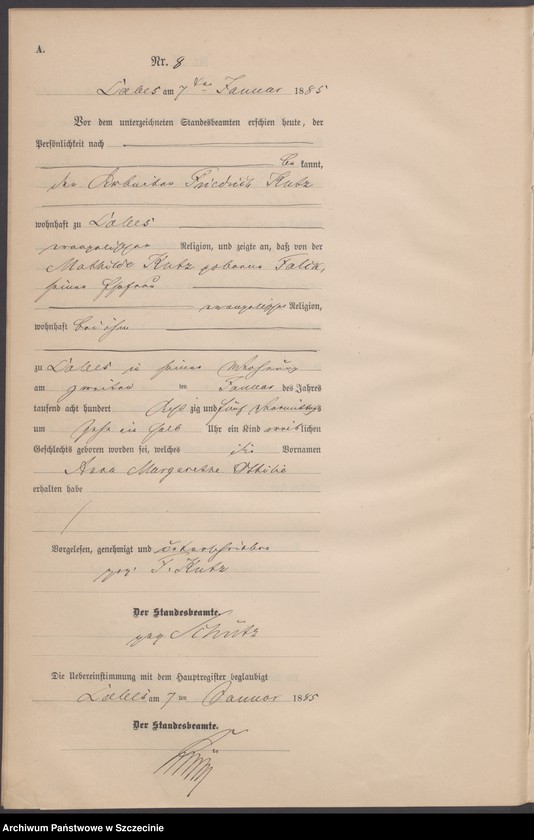 A.
Nr. 8
Labes am 7ten Januar 1885
Vor dem unterzeichneten Standesbeamten erschien heute, der
Persönlichkeit nach
be kannt,
der Arbeiter Friedrich Kutz
wohnhaft zu Labes
evangelischer Religion, und zeigte an, daß von der
Mathilde Kutz geborene Falck,
seiner Ehefrau
evangelischer Religion,
wohnhaft bei ihm
zu Labes in seiner Wohnung
am zweiten ten Januar des Jahres
tausend acht hundert acht zig und fünf Vormittags
um zehn ein halb Uhr ein Kind weiblichen
Geschlechts geboren worden sei, welches die Vornamen
Anna Margarethe Ottilie
erhalten habe
Vorgelesen, genehmigt und unterschrieben
gez. F. Kutz
Der Standesbeamte.
gez Schütz
Die Uebereinstimmung mit dem Hauptregister beglaubigt
Labes am 7ten Januar 1885
Der Standesbeamte.
Archiwum Państwowe w Szczecinie